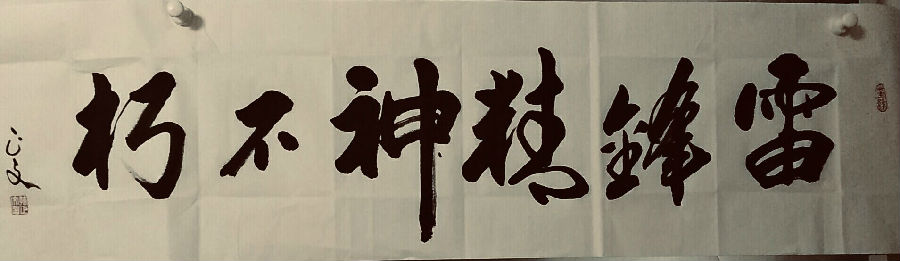 雷鋒精神不朽